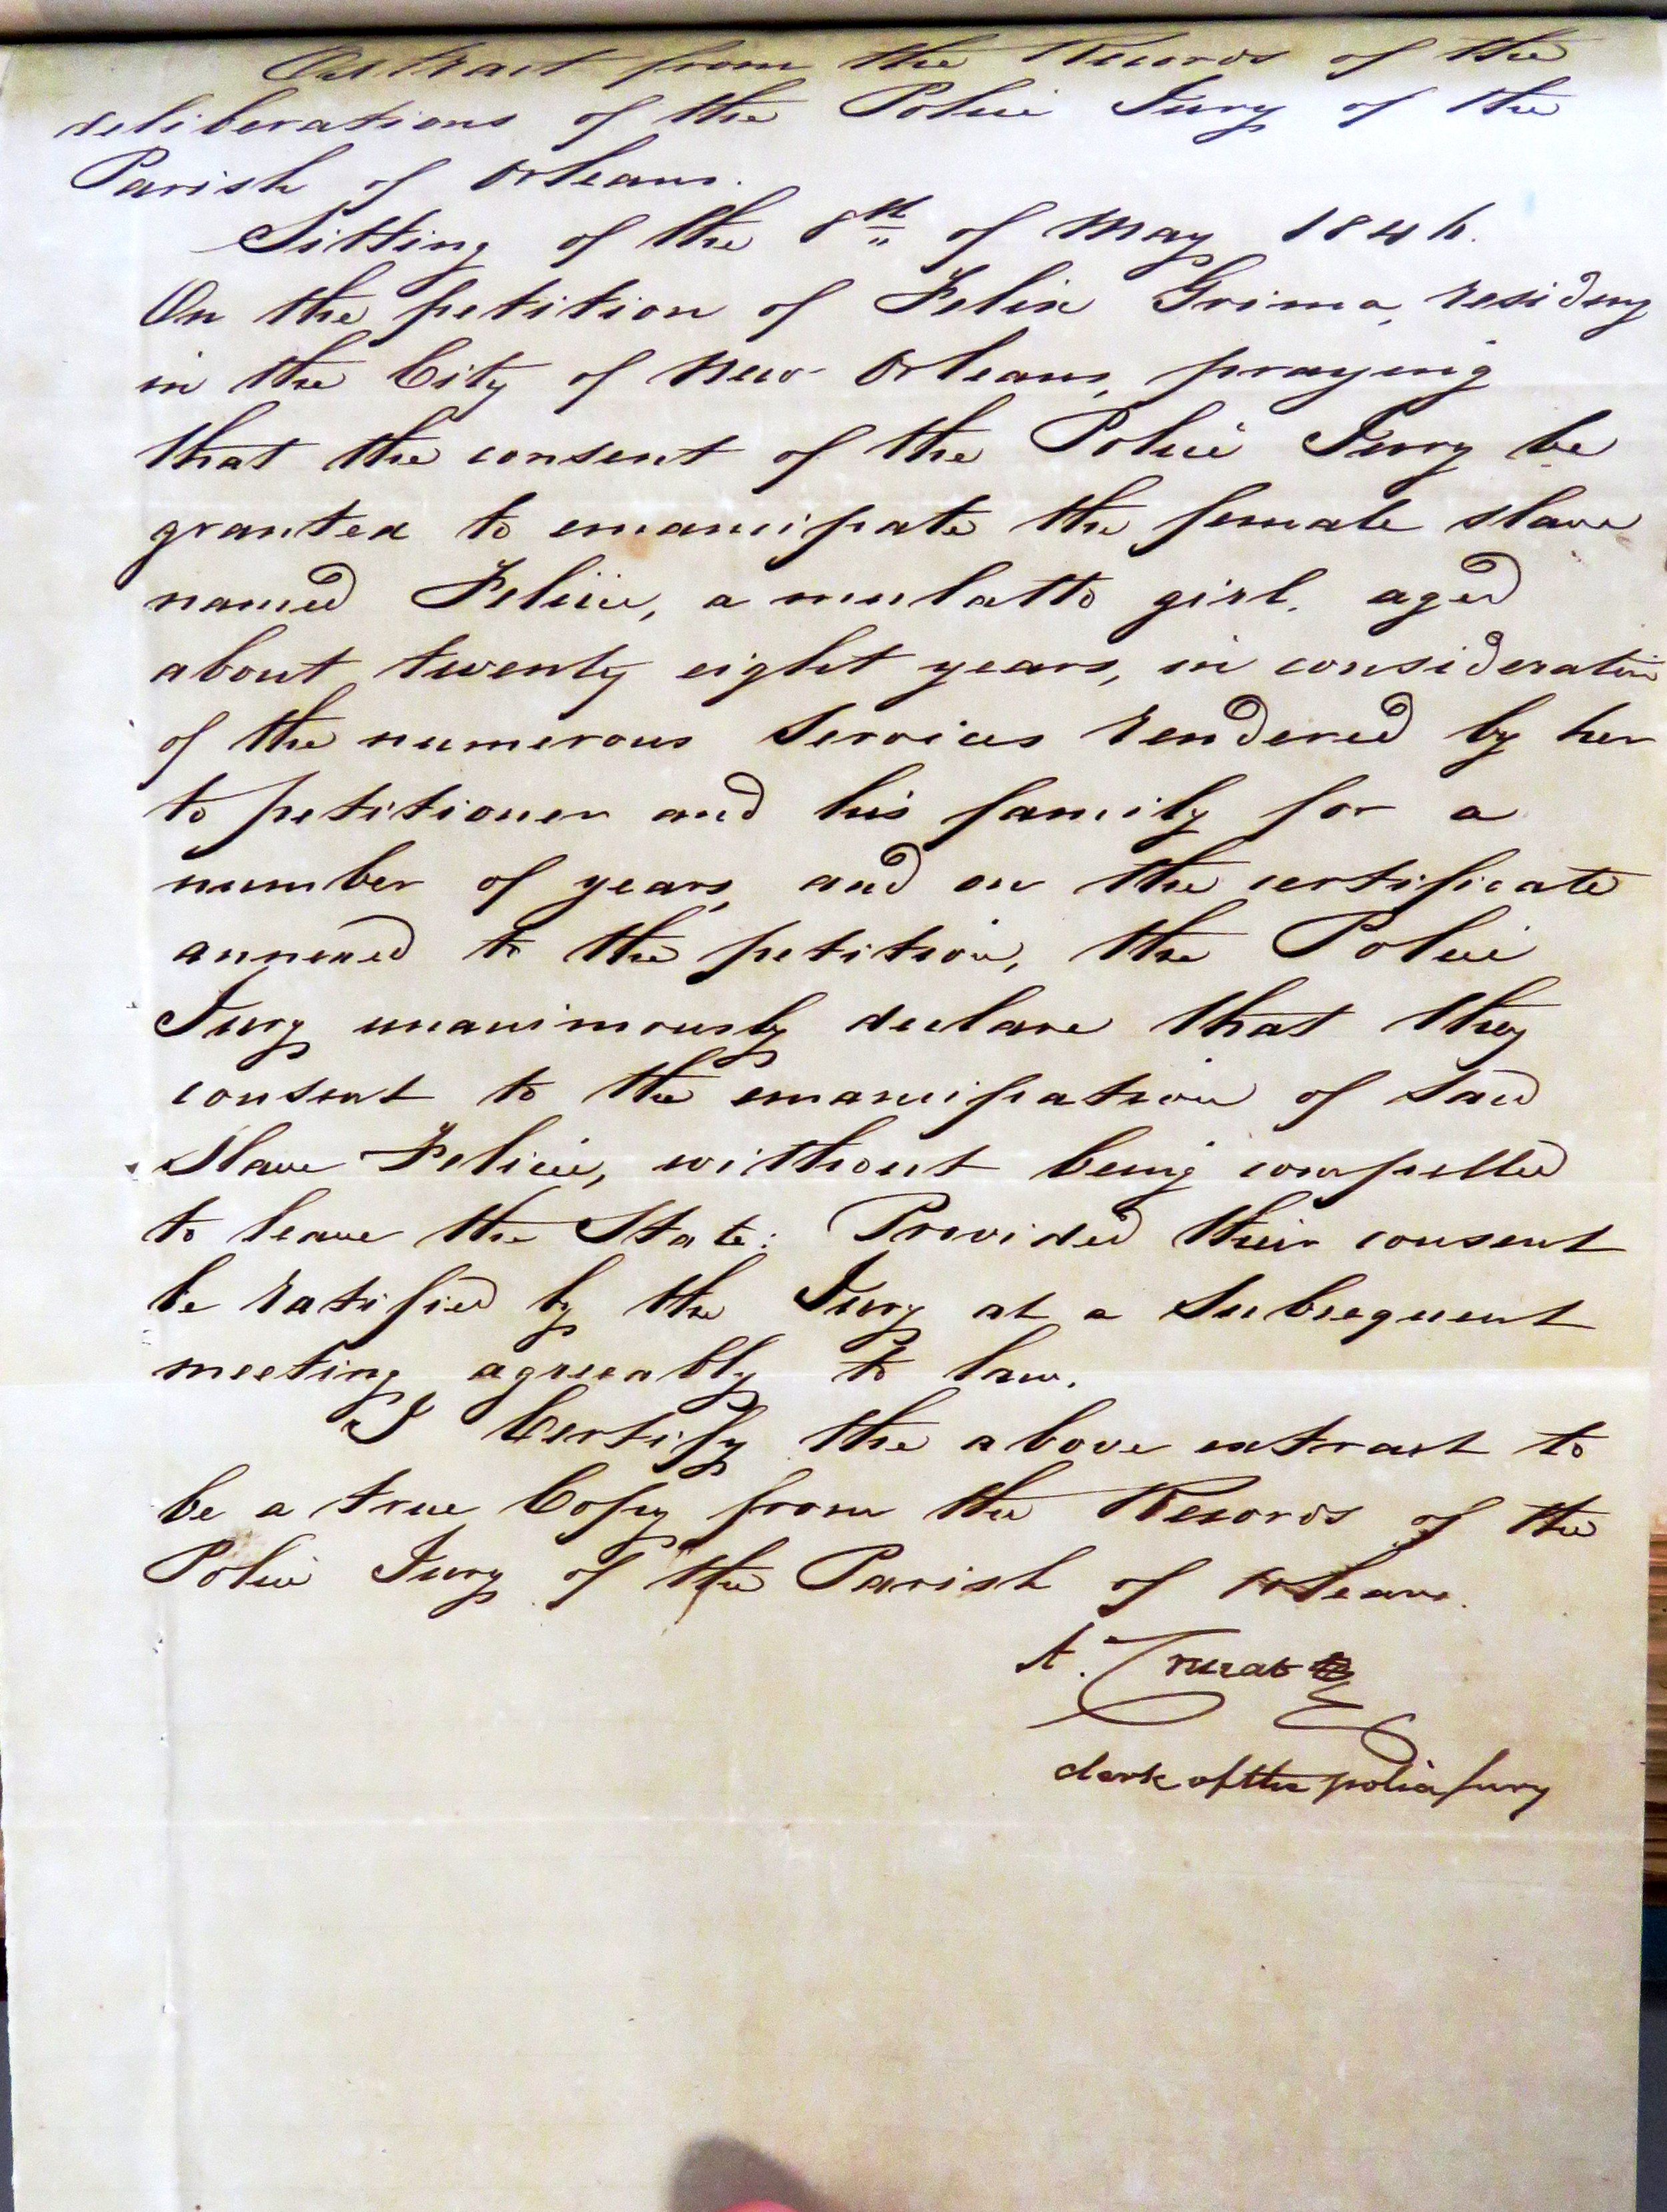 Extract from the Records of the
deliberations of the Police Jury of the
Parish of Orleans.
Sitting of the 8th of May 1846.
On the petition of Felix Grima, residing
in the City of New Orleans, praying
that the consent of the Police Jury be
granted to emancipate the female slave
named Felicie, a mulatto girl, aged
about twenty eight years, in consideration
of the numerous Services rendered by her
to petitioner and his family for a
number of years, and on the certificate
annexed to the petition, the Police
Jury unanimously declare that they
consent to the emancipation of said
Slave Felicie, without being compelled
to leave the State: Provided their consent
be ratified by the Jury at a Subsequent
meeting agreeably to law.
I Certify the above extract to
be a true Copy from the Records of the
Police Jury of the Parish of Orleans.
A.
clerk of the police jury